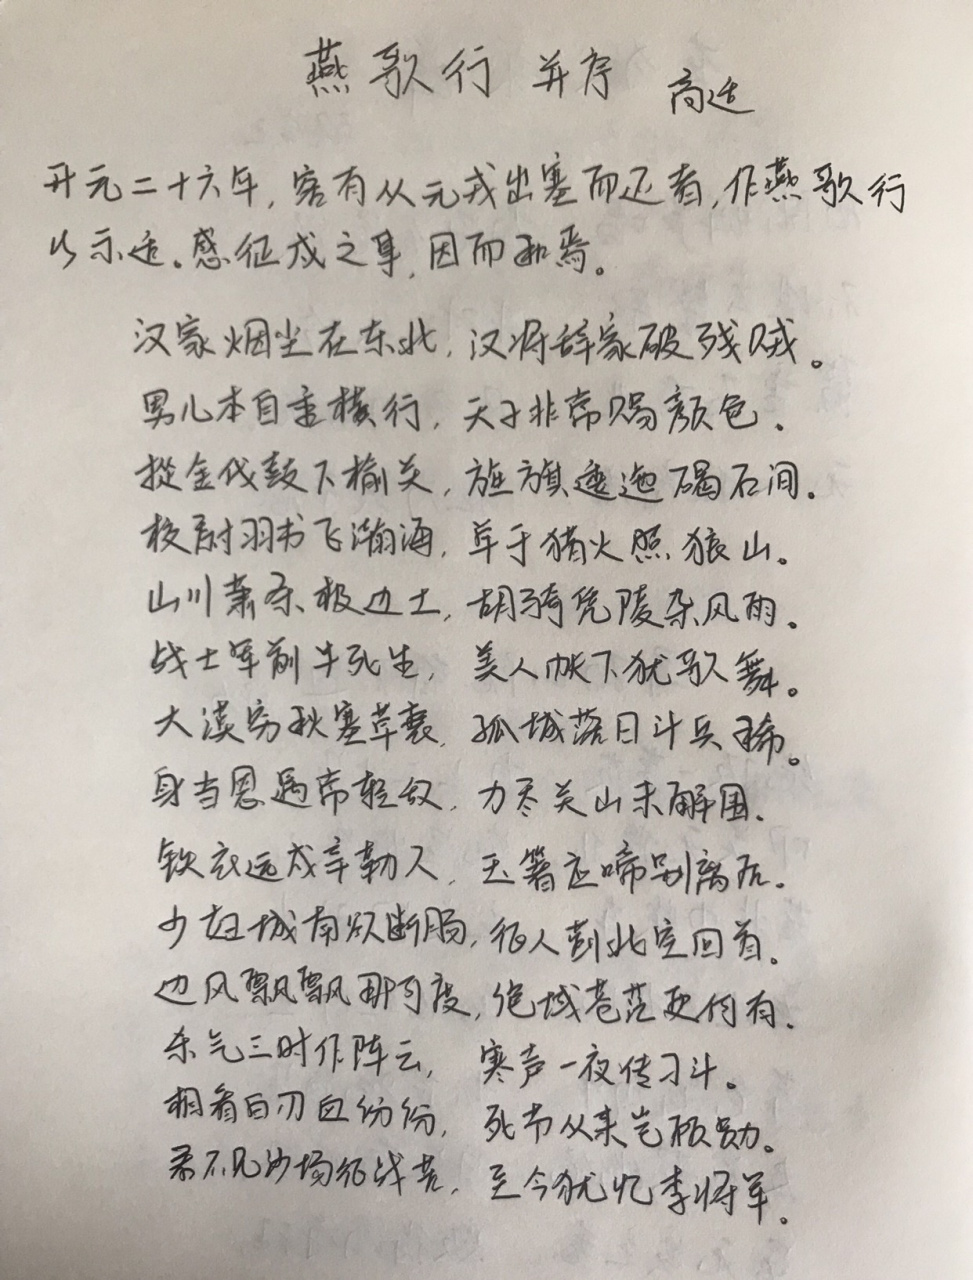 燕歌行 并序 高适
开元二十六年,客有从元戎出塞而还者,作燕歌行
以示适。感征戍之事,因而和焉。
汉家烟尘在东北,汉将辞家破残贼。
男儿本自重横行,天子非常赐颜色。
摐金伐鼓下榆关,旌旗逶迤碣石间。
校尉羽书飞瀚海,单于猎火照狼山。
山川萧条极边土,胡骑凭陵杂风雨。
战士军前半死生,美人帐下犹歌舞。
大漠穷秋塞草衰,孤城落日斗兵稀。
身当恩遇常轻敌,力尽关山未解围。
铁衣远戍辛勤久,玉箸应啼别离后。
少妇城南欲断肠,征人蓟北空回首。
边风飘飘那可度,绝域苍茫更何有。
杀气三时作阵云,寒声一夜传刁斗。
相看白刃血纷纷,死节从来岂顾勋。
君不见沙场征战苦,至今犹忆李将军。